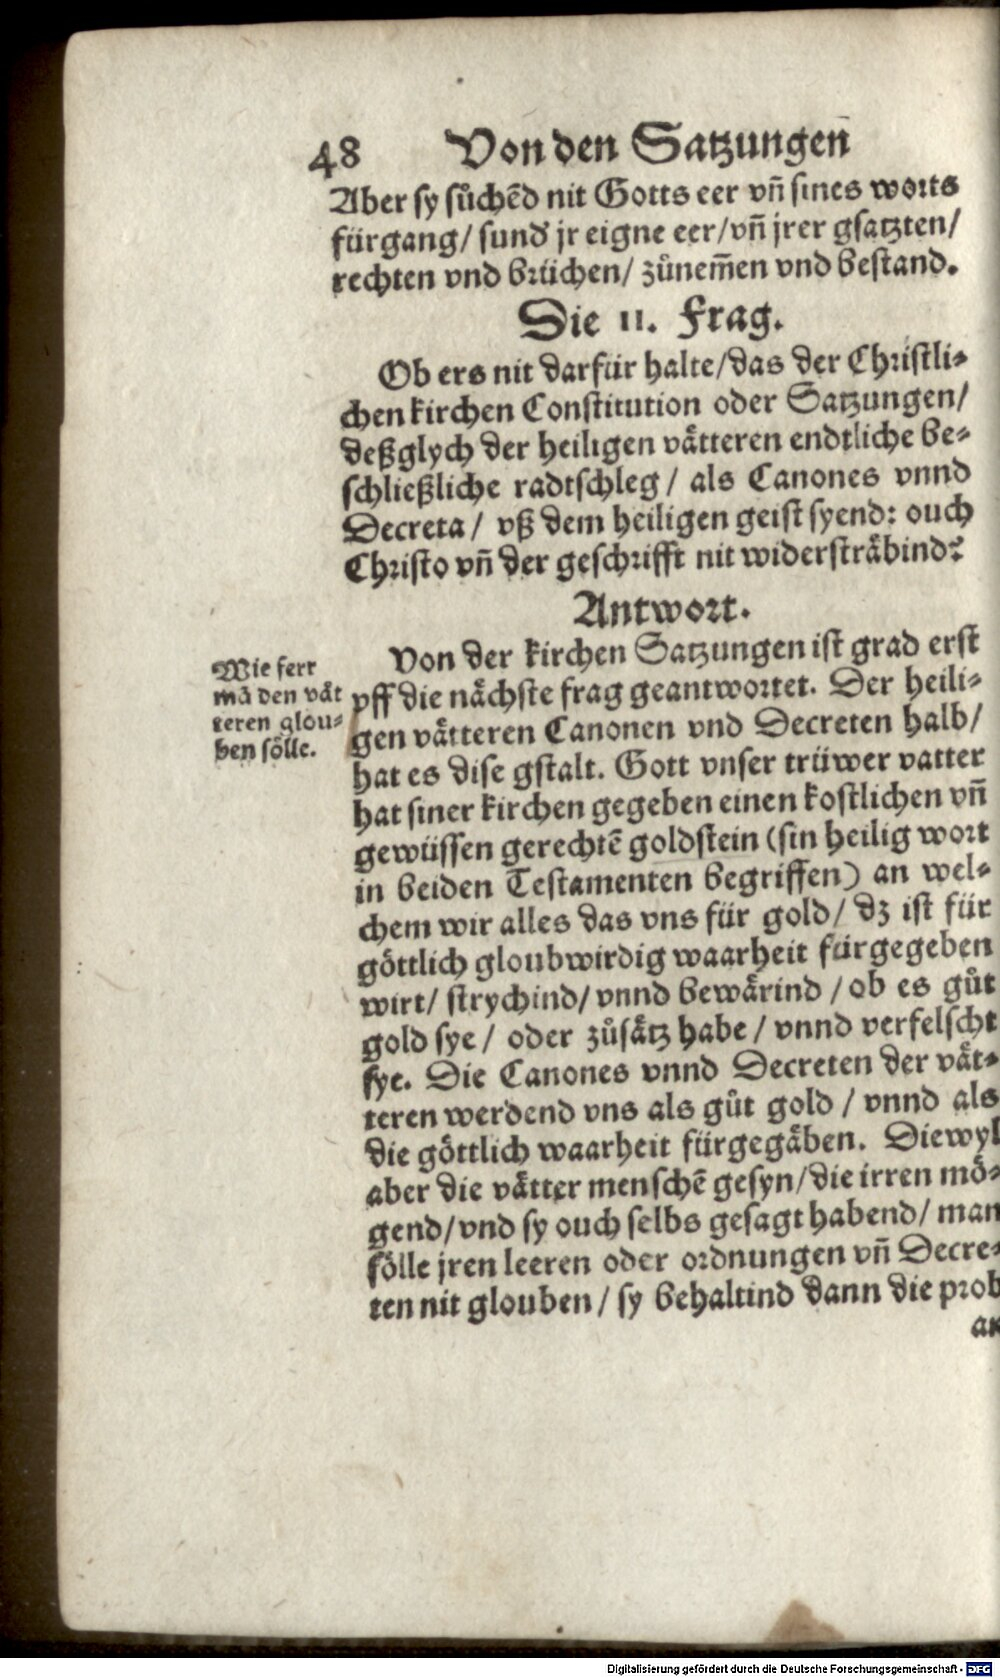 48 Von den Satzungen
Aber sy sůchẽd nit Gotts eer vñ sines worts
fürgang/ sund jr eigne eer/vñ jrer gsatzten/
rechten vnd brüchen/ zůnem̃en vnd bestand.
Die 11. Frag.
Ob ers nit darfür halte/das der Christli⸗
chen kirchen Constitution oder Satzungen/
deßglych der heiligen vätteren endtliche be⸗
schließliche radtschleg/ als Canones vnnd
Decreta/ vß dem heiligen geist syend: ouch
Christo vñ der geschrifft nit widersträbind?
Antwort.
Von der kirchen Satzungen ist grad erst
vff die nächste frag geantwortet. Der heili⸗
gen vätteren Canonen vnd Decreten halb/
hat es dise gstalt. Gott vnser trüwer vatter
hat siner kirchen gegeben einen kostlichen vñ
gewüssen gerechtẽ goldstein (sin heilig wort
in beiden Testamenten begriffen) an wel⸗
chem wir alles das vns für gold/ dz ist für
göttlich gloubwirdig waarheit fürgegeben
wirt/ strychind/ vnnd bewärind/ ob es gůt
gold sye/ oder zůsätz habe/ vnnd verfelscht
sye. Die Canones vnnd Decreten der vät⸗
teren werdend vns als gůt gold/ vnnd als
die göttlich waarheit fürgegäben. Diewyl
aber die vätter menschẽ gesyn/die irren mö⸗
gend/vnd sy ouch selbs gesagt habend/ man
sölle jren leeren oder ordnungen vñ Decre⸗
ten nit glouben/ sy behaltind dann die prob
an
Wie ferr
mā den vät
teren glou⸗
ben sölle.
Digitalisierung gefördert durch die Deutsche Forschungsgemeinschaft - DFG